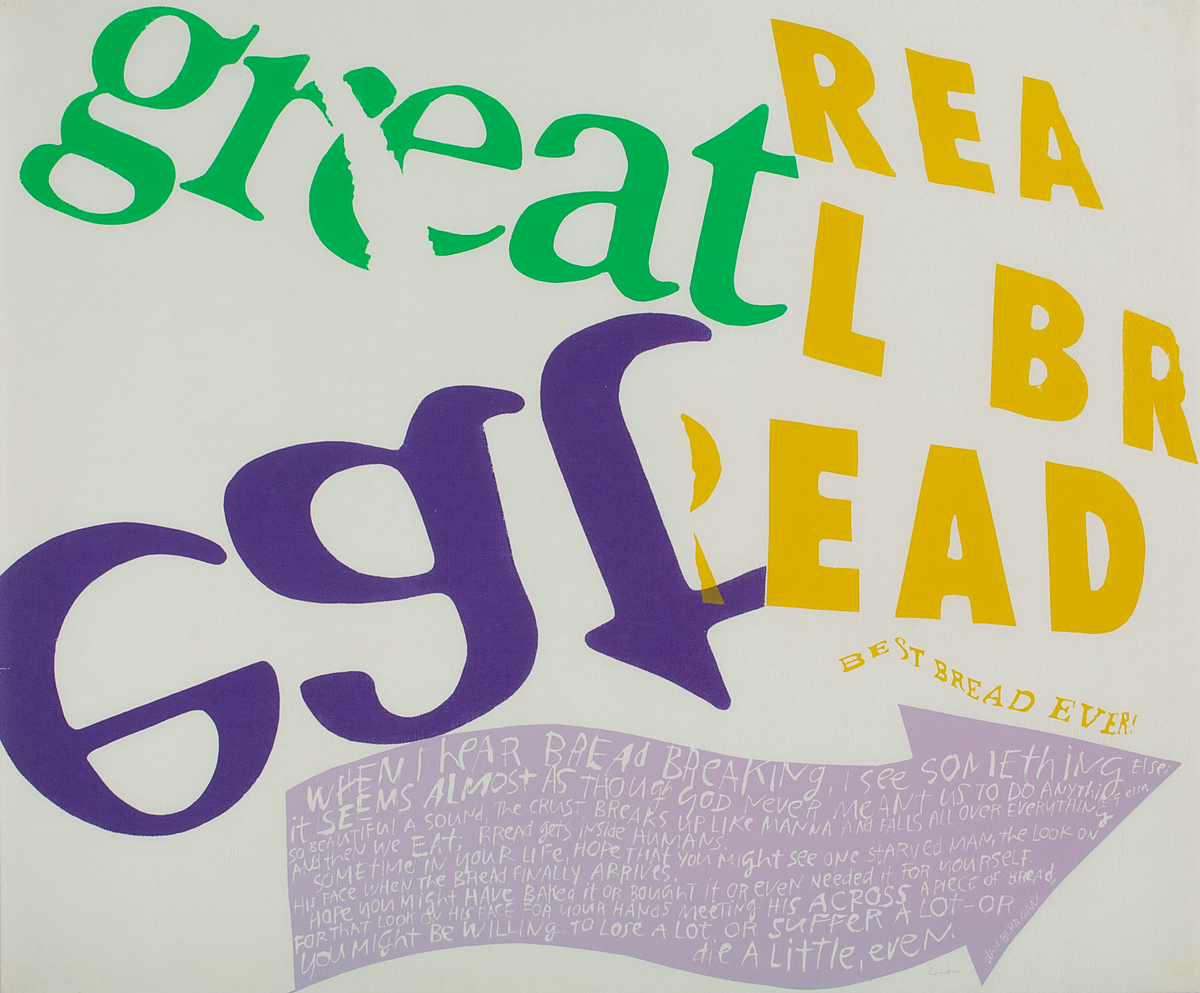 great
REA
L BR
READ
eat
BEST BREAD EVER!
WHEN I hEAR BREAd BREAKING, I see SOMEthING ELSE;
it SEEMS ALMOST AS THOUgh GOD NEveR MEANT US TO DO ANYthiNg else.
SO BEAUTIFUL A SOUND, The CRUST BREAKS UP LIKE MANNA AND FALLS ALL OVER EVERYTHING,
ANd then WE EAT; BREAD gets INside HUMANS.
SOMETIME IN YOUR LIFE, HOPE THAT YOU MIght see ONE STARVED MAN, the LOOK ON
HIS FACE WHEN THE BREAD FINALLY ARRIVES.
HOPE YOU MIGHT HAVE BAKEd it OR BOUGHT IT OR EVEN NEEDED IT FOR YOURSELF.
FOR THAT LOOK ON HIS FACE FOR YOUR HANDS MEETING HIS ACROSS A PIECE OF BREAD,
YOU MIGHT BE WILLING TO LOSE A LOT, OR SUFFER A LOT-OR
die A LittLE, eveN.
DAN BERRIGAN
Corita